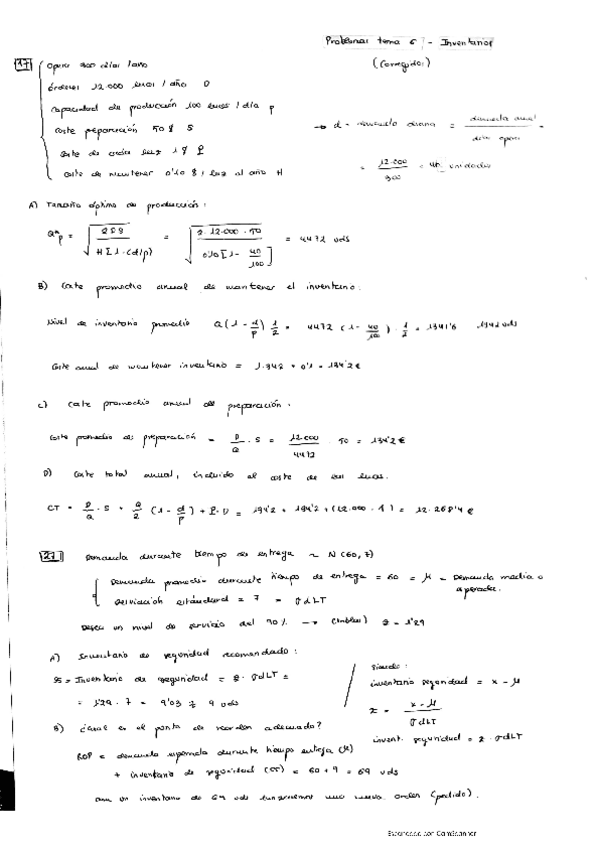 Problemas tema 6 - Inventarios
(corregidos)
17 Opera 300 días / año
órdenes 12.000 luces / año D
capacidad de producción 100 luces / día p
coste preparación 50 $ S
coste de cada luz 1 $ P
coste de mantener 0'10 $ / luz al año H
→ d - demanda diaria = demanda anual / días opera
= 12.000 / 300 = 40 unidades
A) Tamaño óptimo de producción:
Q*p = √ 2DS / H[1-(d/p)] = √ 2·12.000·50 / 0'10[1- 40/100] = 4472 uds
B) Coste promedio anual de mantener el inventario.
Nivel de inventario promedio Q(1 - d/p) 1/2 = 4472 (1 - 40/100) · 1/2 = 1341'6 1342 uds
Coste anual de mantener inventario = 1.342 · 0'1 = 134'2 €
C) Coste promedio anual de preparación.
Coste promedio de preparación = D/Q · S = 12.000/4472 · 50 = 134'2 €
D) Coste total anual, incluido el coste de las luces.
CT = D/Q · S + Q/2 (1 - d/p) + P·D = 134'2 + 134'2 + (12.000 · 1) = 12.268'4 €
27 Demanda durante tiempo de entrega ~ N(60, 7)
Demanda promedio durante tiempo de entrega = 60 = μ - Demanda media o esperada.
Desviación estándard = 7 = σdLT
Desea un nivel de servicio del 90% → (tablas) z = 1'29
A) Inventario de seguridad recomendado:
SS = Inventario de seguridad = z · σdLT =
= 1'29 · 7 = 9'03 ≈ 9 uds
Siendo:
inventario seguridad = x - μ
z = x - μ / σdLT
invent. seguridad = z · σdLT
B) ¿Cuál es el punto de reorden adecuado?
ROP = demanda esperada durante tiempo entrega (μ)
+ inventario de seguridad (SS) = 60 + 9 = 69 uds
un inventario de 69 uds una nueva orden (pedido).
Escaneado con CamScanner